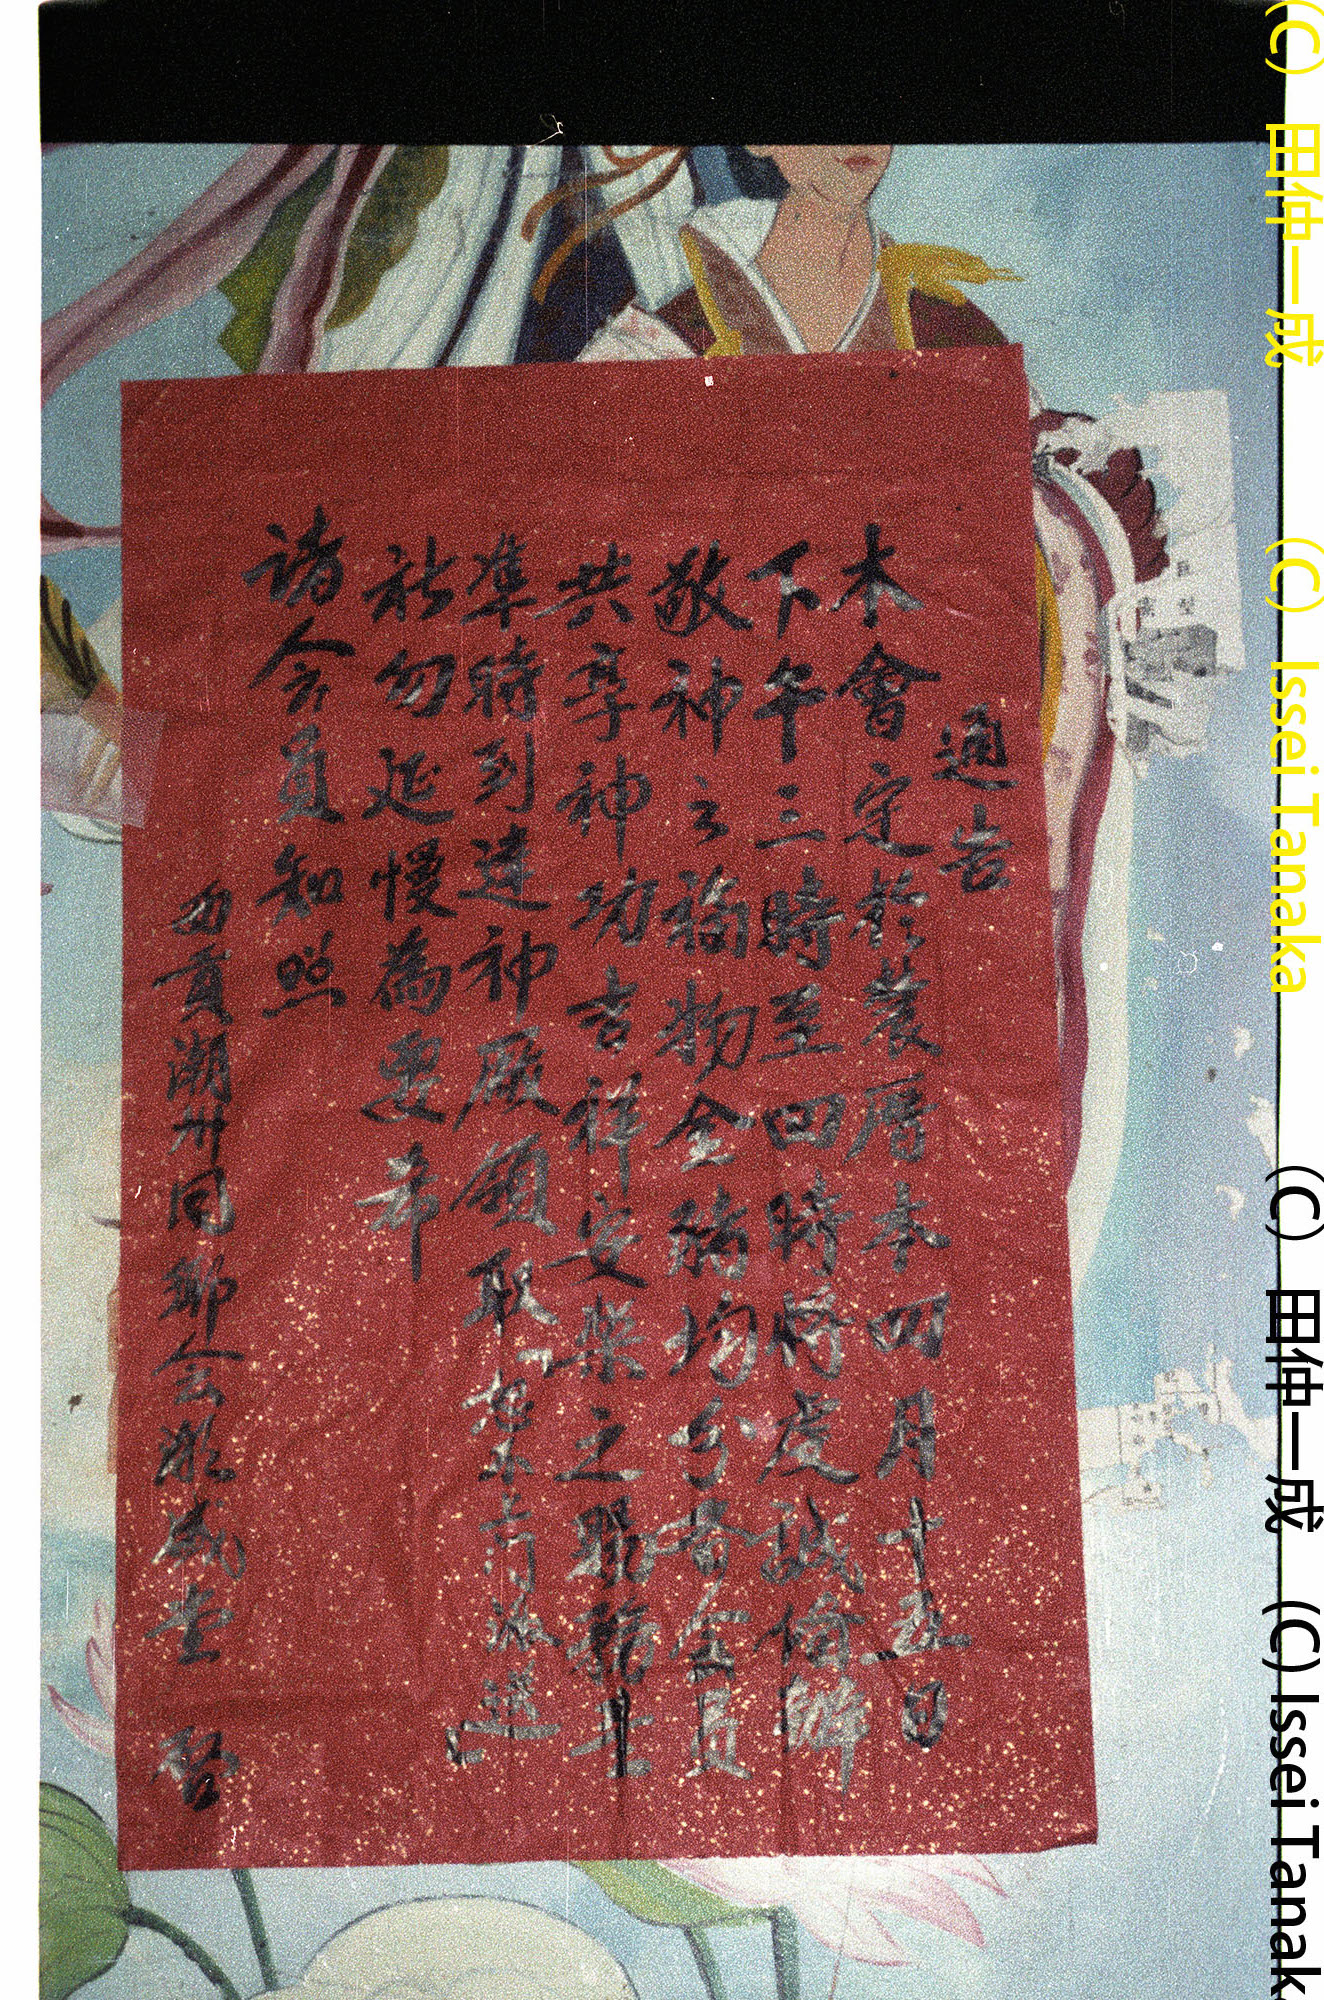 通告
本會定於農曆本四月十五日
下午三時至四時將虔誠俻辦
敬神之福物全猪均分會員
共享神功吉祥安樂之聯
準時到達神殿領取
社勿延慢為要希
諸会員知照
勿貢潮州同鄉会 啓
(C) 田仲一成 (C) Issei Tanaka (C) 田仲一成 (C) Issei Tanak